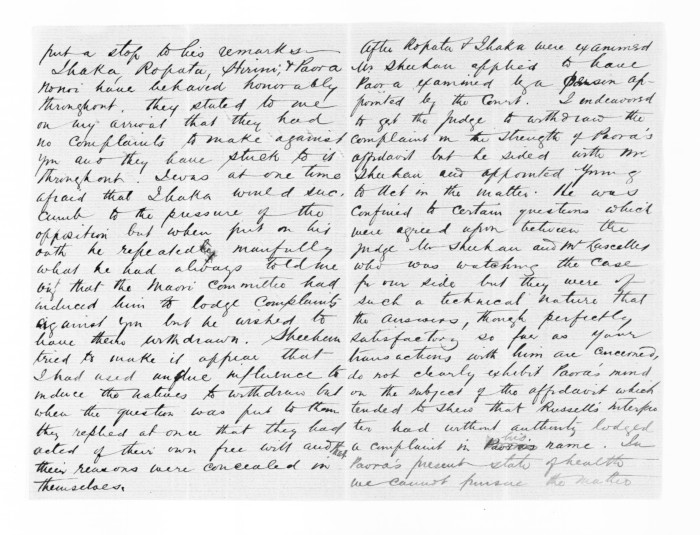 put a stop to his remarks—
Ihaka Ropata, Hirini, & Paora
Nonoi have behaved honorably
throughout. They stated to me
on my arrival that they had
no complaints to make against
you and they have stuck to it
throughout. I was at one time
afraid that Ihaka would suc-
cumb to the pressure of the
opposition but when put on his
oath he repeated manfully
what he had always told me
viz that the Maori Committee had
induced him to lodge complaints
against you but he wished to
have them withdrawn. Sheehan
tried to make it appear that
I had used undue influence to
induce the natives to withdraw but
when the question was put to them
they replied at once that they had
acted of their own free will and that
their reasons were concealed in
themselves.
After Ropata & Ihaka were examined
Mr Sheehan applied to have
Paora examined by a person ap-
pointed by the Court. I endeavored
to get the Judge to withdraw the
complaint on the strength of Paora's
affidavit but he sided with Mr
Sheehan and appointed Young
to Act in the matter. He was
confined to certain questions which
were agreed upon between the
Judge Mr Sheehan and Mr Lascelles
who was watching the case
for our side but they were of
such a technical nature that
the answers, though perfectly
satisfactory so far as your
transactions with him are concerned,
do not clearly exhibit Paora's mind
on the subject of the affidavit which
tended to shew that Russell's interpre-
ter had without authority lodged
a complaint in Paoras his name. In
Paora's present state of health
we cannot pursue the matter